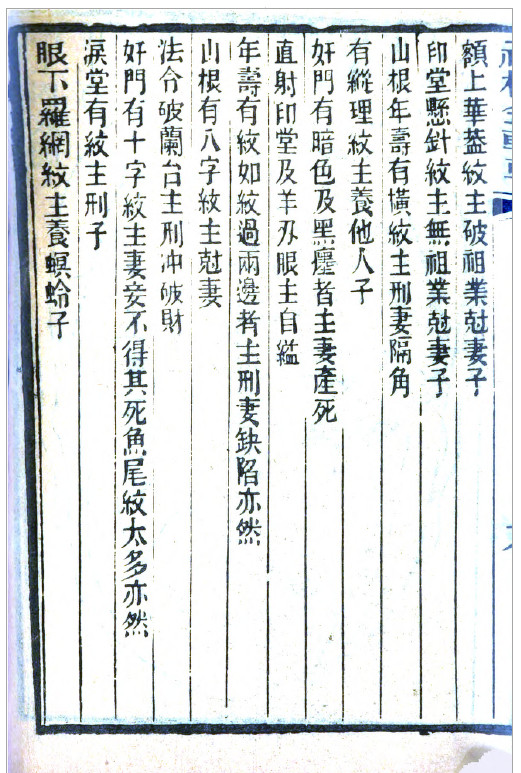 額上華葢紋主破祖業尅妻子
印堂懸針紋主無祖業尅妻子
山根年壽有橫紋主刑妻隔角
有縱理紋主養他人子
奸門有暗色及黑靨者主妻產死
直射印堂及羊刃眼主自縊
年壽有紋如紋過兩邊者主刑妻缺陷亦然
山根有八字紋主尅妻
法令破蘭台主刑冲破財
奸門有十字紋主妻妾不得其死魚尾紋太多亦然
淚堂有紋主刑子
眼下羅網紋主養螟蛉子